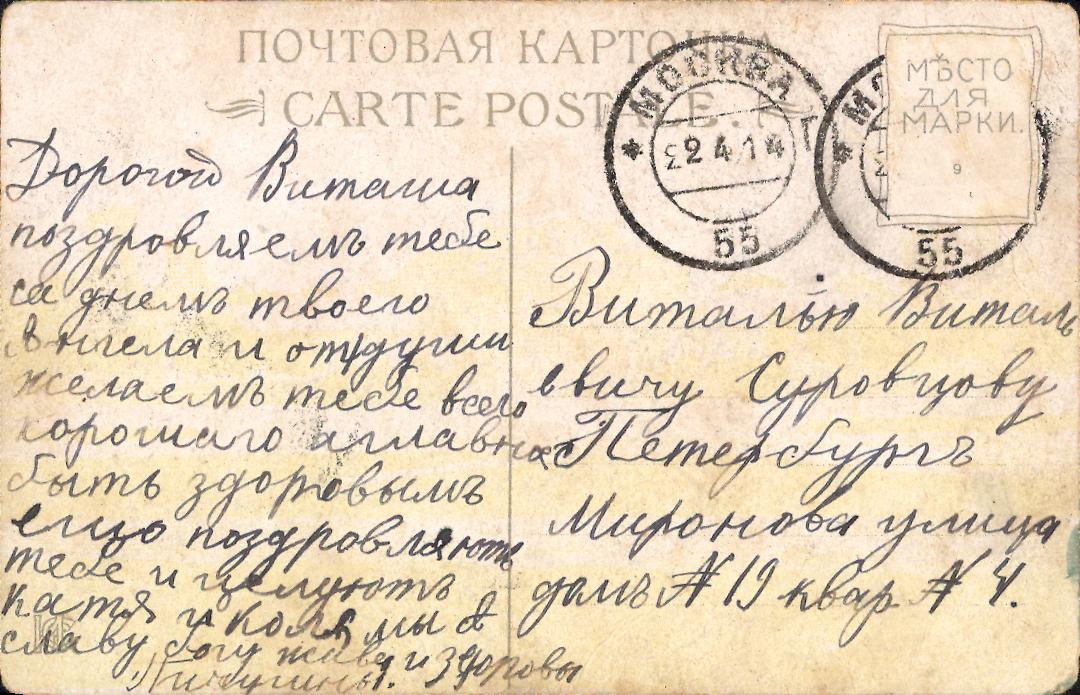 ПОЧТОВАЯ КАРТОЧКА
CARTE POSTALE.
МОСКВА
22 4 14
55
55
МѢСТО
ДЛЯ
МАРКИ.
9
Дорогой Виташа
поздровляемъ тебе
са днемъ твоего
Ангела и от души
желаемъ тебе всего
хорошаго а главное
быть здоровымъ
еще поздровляють
тебе и целують
катя и коля мы
славу богу живы и здоровы
Пичугины.
Виталью Виталь
евичу Суровцову
Петербургъ
Миронова улица
домъ № 19 квар № 4.